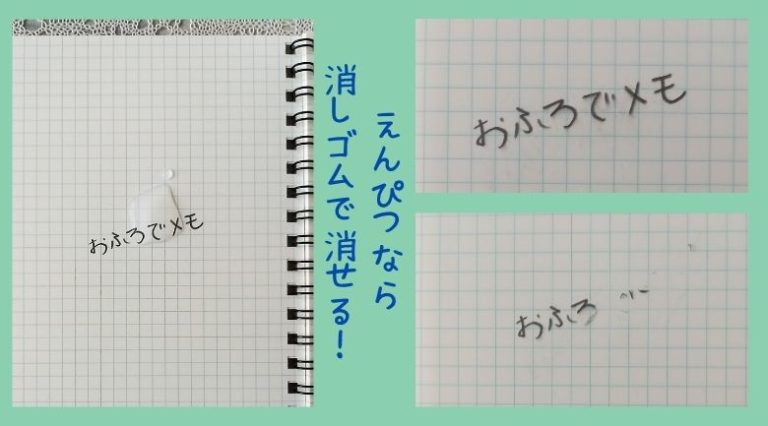 おふろでメモ
えんぴつなら
消しゴムで消せる!
おふろでメモ
おふろ